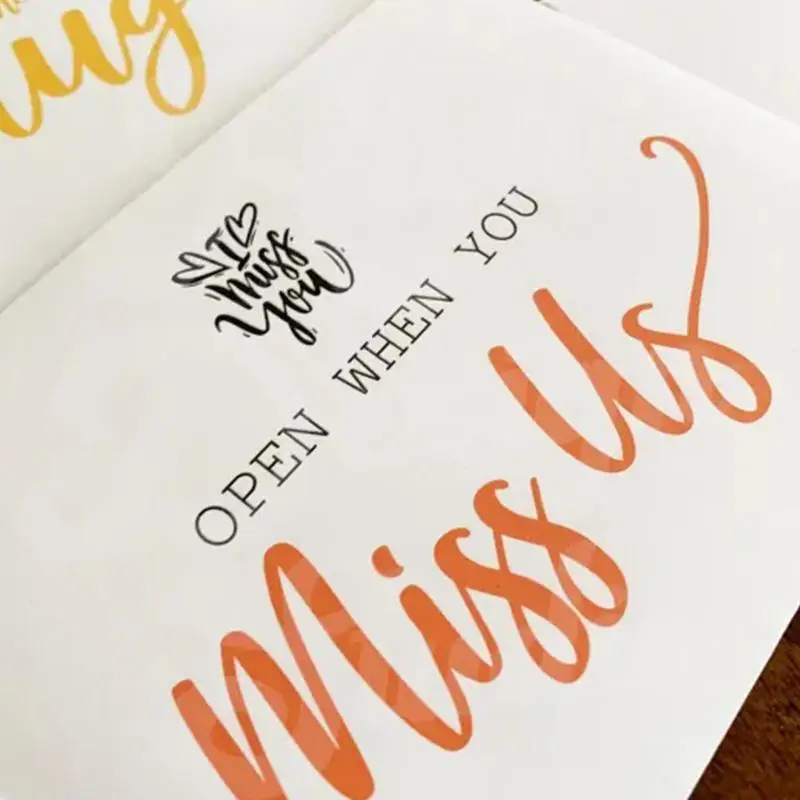 I
miss
You
OPEN WHEN YOU
Miss Us